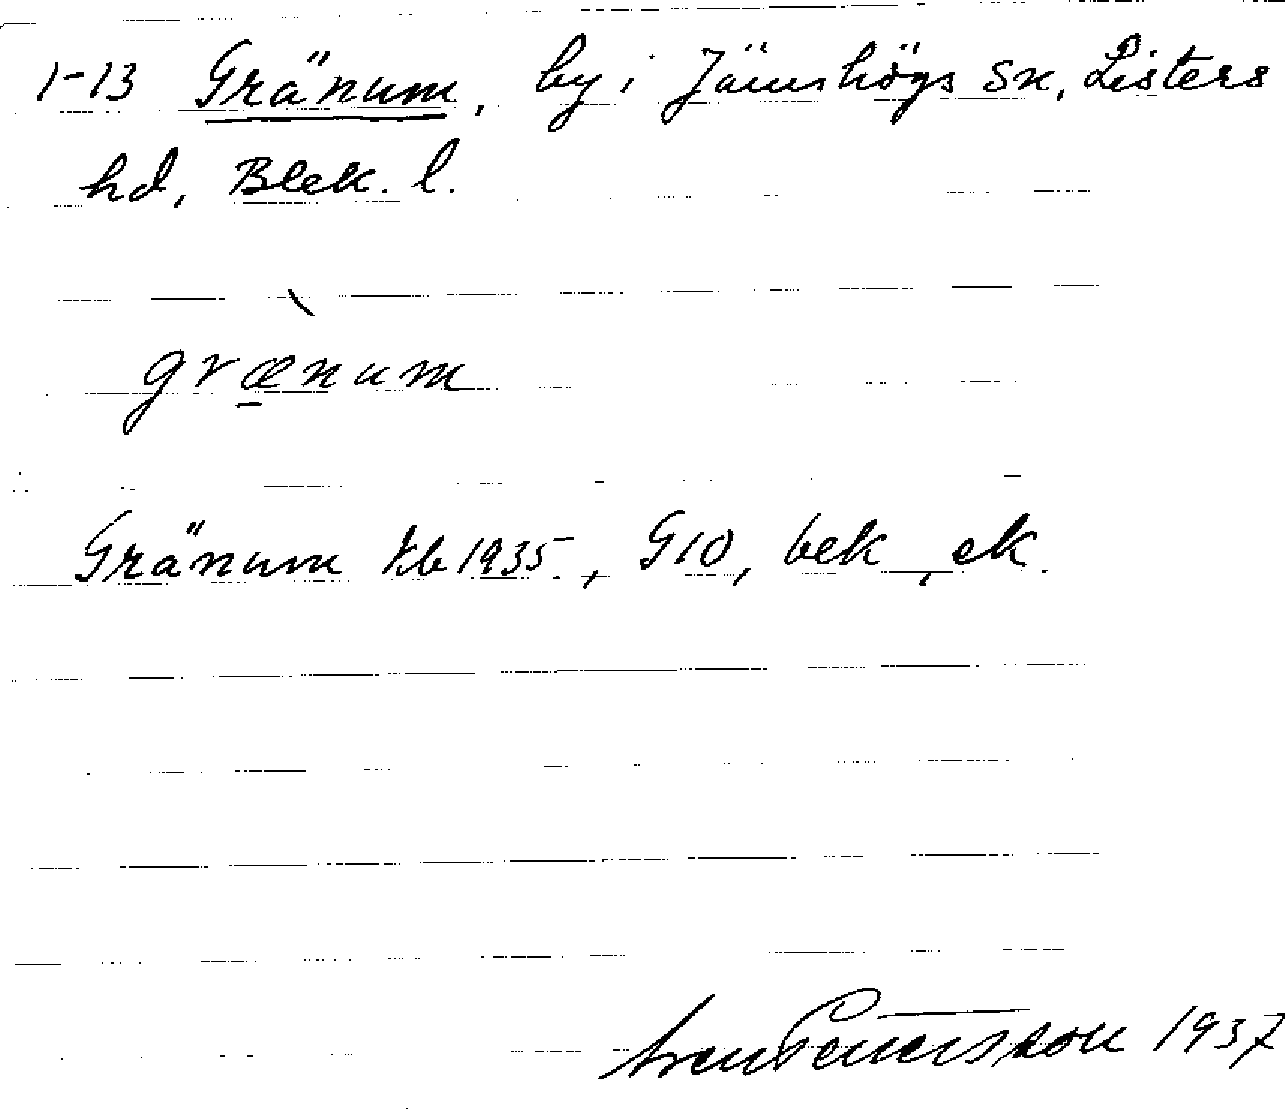 1-13 Gränum, by i Jämshögs sn, Listers
hd, Blek. l.
græ̱̀num
Gränum Kb 1935, G10, bek, ek.
Pettersson 1937